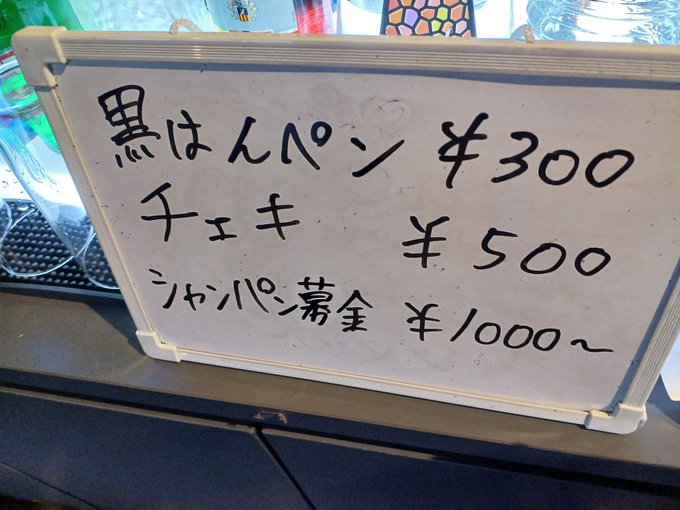 黒はんペン ¥300
チェキ ¥500
シャンパン募金 ¥1000~